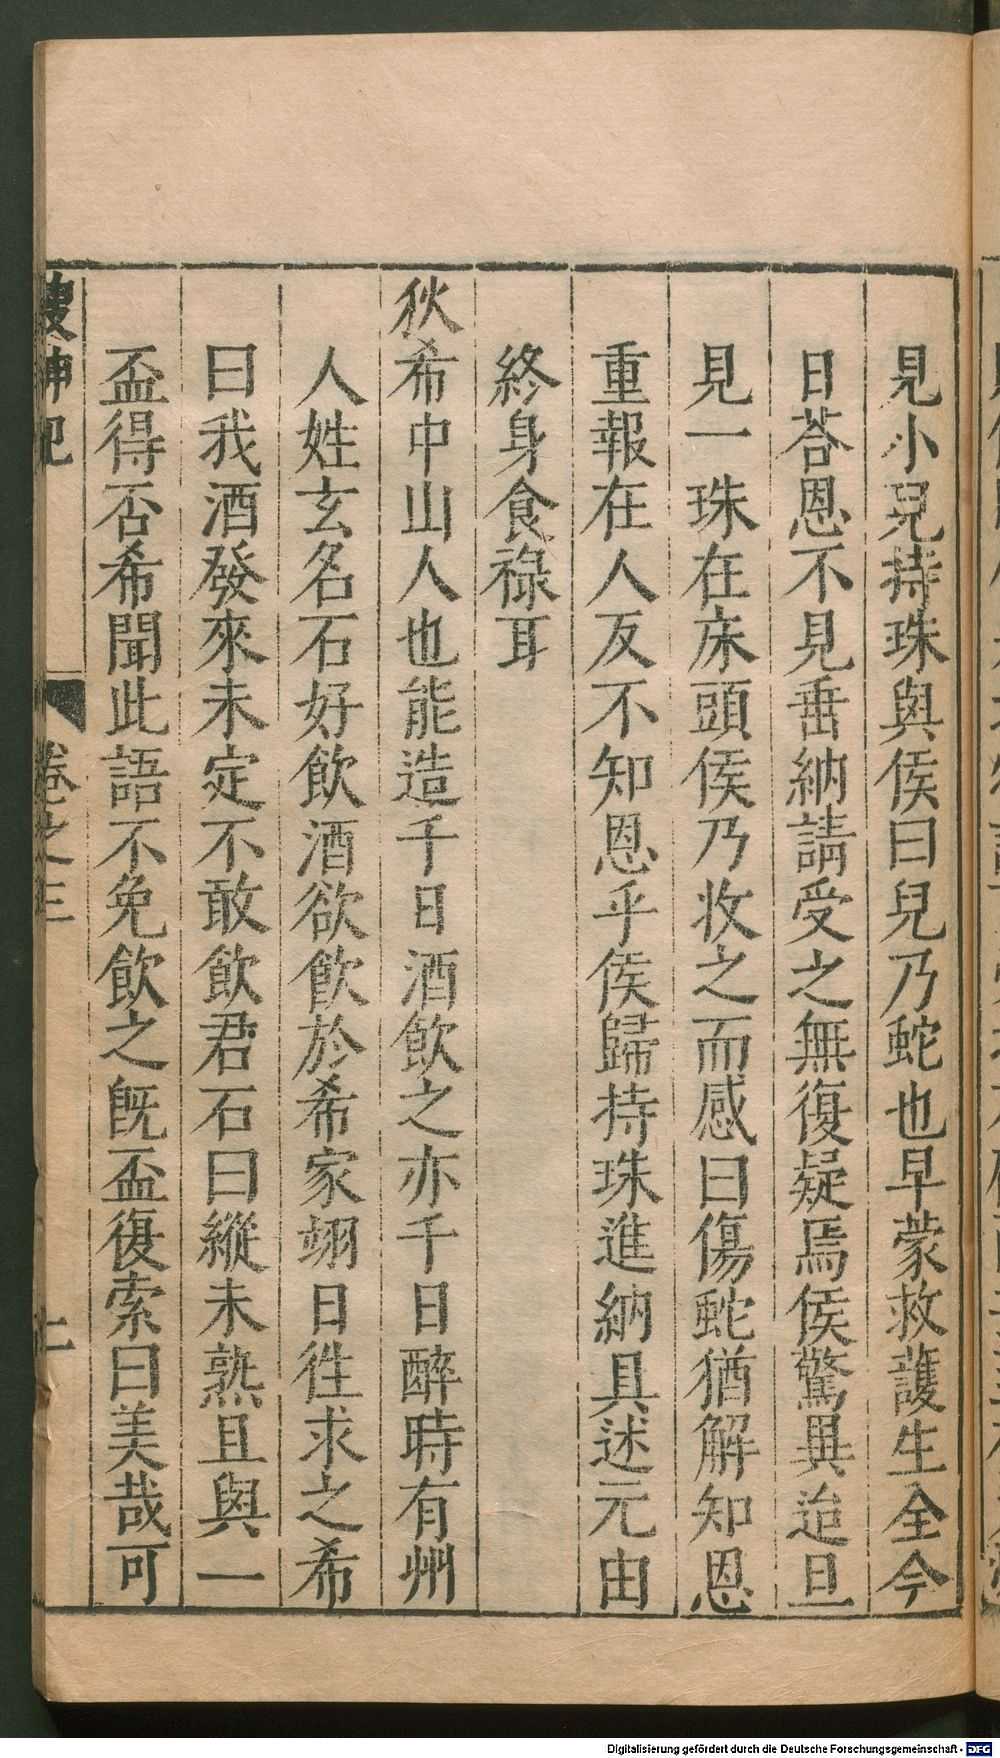 見小兒持珠與侯曰兒乃蛇也早蒙救護生全今
日荅恩不見垂納請受之無復疑焉侯驚異迨旦
見一珠在床頭侯乃收之而感曰傷蛇猶解知恩
重報在人反不知恩乎侯歸持珠進納具述元由
終身食祿耳
狄希中山人也能造千日酒飲之亦千日醉時有州
人姓玄名石好飲酒欲飲於希家翊日徃求之希
曰我酒發來未定不敢飲君石曰縱未熟且與一
盃得否希聞此語不免飲之旣盃復索曰美哉可
搜神記 卷之三
Digitalisierung gefördert durch die Deutsche Forschungsgemeinschaft - DFG